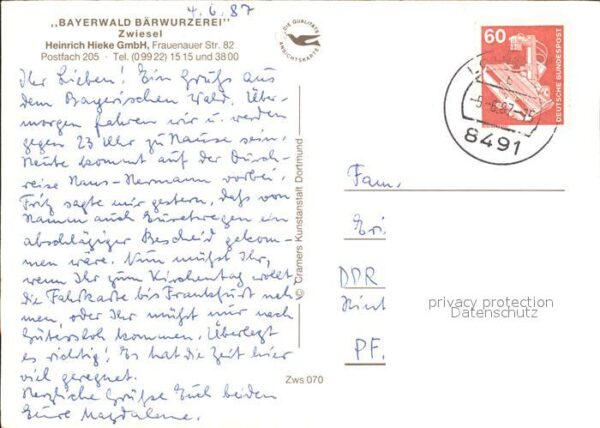 4.6.87
„BAYERWALD BÄRWURZEREI"
Zwiesel
Heinrich Hieke GmbH, Frauenauer Str. 82
Postfach 205 · Tel. (0 99 22) 15 15 und 38 00
Ihr Lieben! Ein Gruß aus
dem Bayerischen Wald. Über-
morgen fahren wir u. werden
gegen 23 Uhr zu Hause sein.
Heute kommt auf der Durch-
reise Hans-Hermann vorbei.
Fritz sagte mir gestern, daß von
Hamm auch Euretwegen ein
abschlägiger Bescheid gekom-
men wäre. Nun müßt Ihr,
wenn Ihr zum Kirchentag wollt
die Fahrkarte bis Frankfurt neh-
men, oder Ihr müßt nur nach
Gütersloh kommen. Überlegt
es richtig! Es hat die Zeit hier
viel geregnet.
Herzliche Grüße Euch beiden
Eure Magdalene.
DIE QUALITÄTS
ANSICHTSKARTE
© Cramers Kunstanstalt Dortmund
Zws 070
60
DEUTSCHE BUNDESPOST
-5.-6.87-15
8491
Fam.
DDR
PF.
privacy protection
Datenschutz